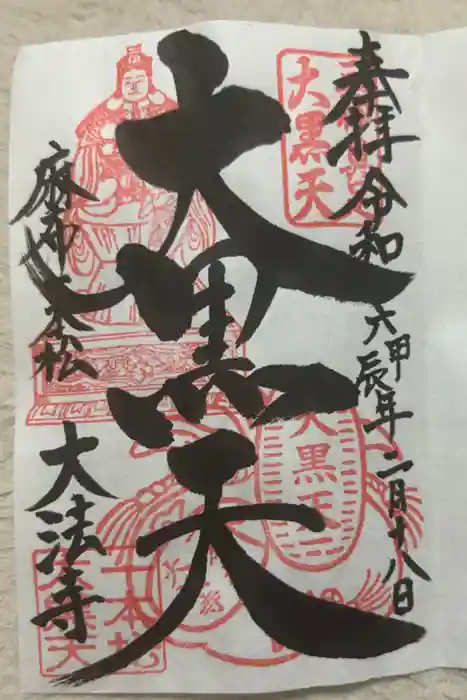 奉拝
令和六甲辰年二月十八日
大黒天
大黒天
大黒天
麻布一本松
大法寺
一本松
大黒天